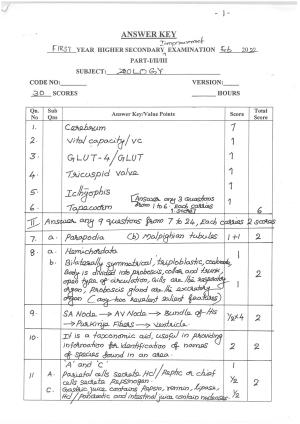 - 1 -
ANSWER KEY
Improvement
FIRST YEAR HIGHER SECONDARY EXAMINATION Feb 2022
PART-I/II/III
SUBJECT: ZOOLOGY
CODE NO: VERSION:
30 SCORES HOURS
Qn. No Sub Qns Answer Key/Value Points Score Total Score
1. Cerebrum 1
2. Vital capacity/VC 1
3. GLUT-4/GLUT 1
4. Tricuspid valve 1
5. Icthyophis 1
(Answer any 3 questions
from 1 to 6. Each carries
1 score)
6 Tapeworm 6
II Answer any 9 questions from 7 to 24, Each carries 2 scores
7. a. Parapodia (b) Malpighian tubules 1+1 2
8. a. Hemichordata 1
b. Bilaterally symmetrical, triploblastic, coelomate,
body is divided into proboscis, collar and trunk,
open type of circulation, gills are the respiratory
organ, proboscis gland are the excretory
organ (any two relevant salient features) 1 2
9. SA Node → AV Node → Bundle of His
→ Purkinje Fibers → Ventricle ½x4 2
10. It is a taxonomic aid, useful in providing
information for identification of names
of species found in an area. 2 2
11 'A' and 'C'
A. Parietal cells secrete Hcl/Peptic or chief
cells secrete Pepsinogen. ½
C. Gastric juice contains Pepsin, rennin, lipase,
Hcl/Pancreatic and intestinal juice contain nucleases ½ 2